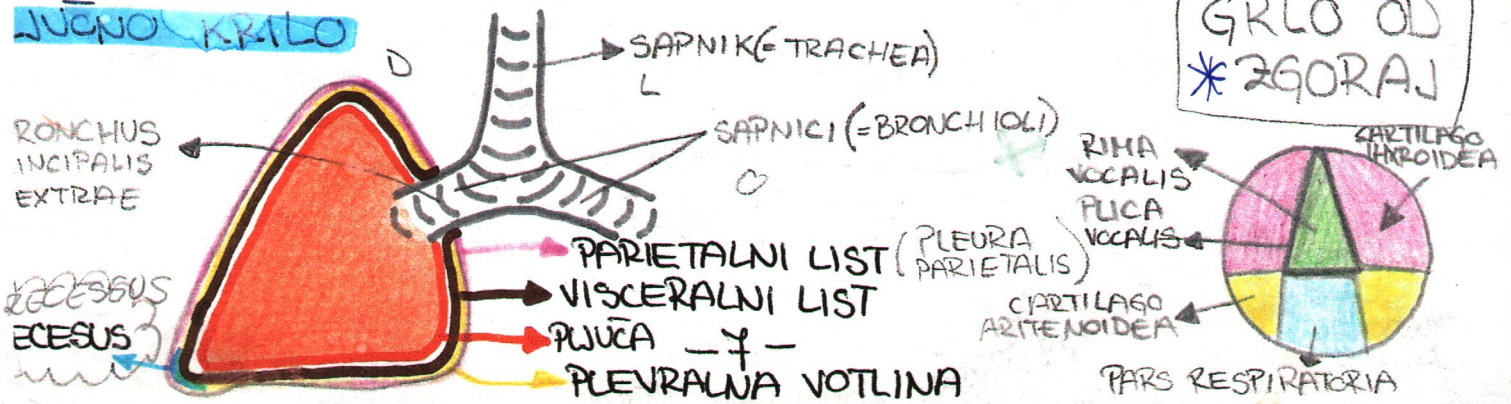 JUČNO KRILO
D
SAPNIK (= TRACHEA)
L
SAPNICI (= BRONCHIOLI)
O
RONCHUS
INCIPALIS
EXTRAE
RECESSUS
ECESUS
PARIETALNI LIST (PLEURA
PARIETALIS)
VISCERALNI LIST
PLJUČA - 7 -
PLEVRALNA VOTLINA
GRLO OD
* ZGORAJ
RIMA
VOCALIS
PLICA
VOCALIS
CARTILAGO
THYROIDEA
CARTILAGO
ARITENOIDEA
PARS RESPIRATORIA